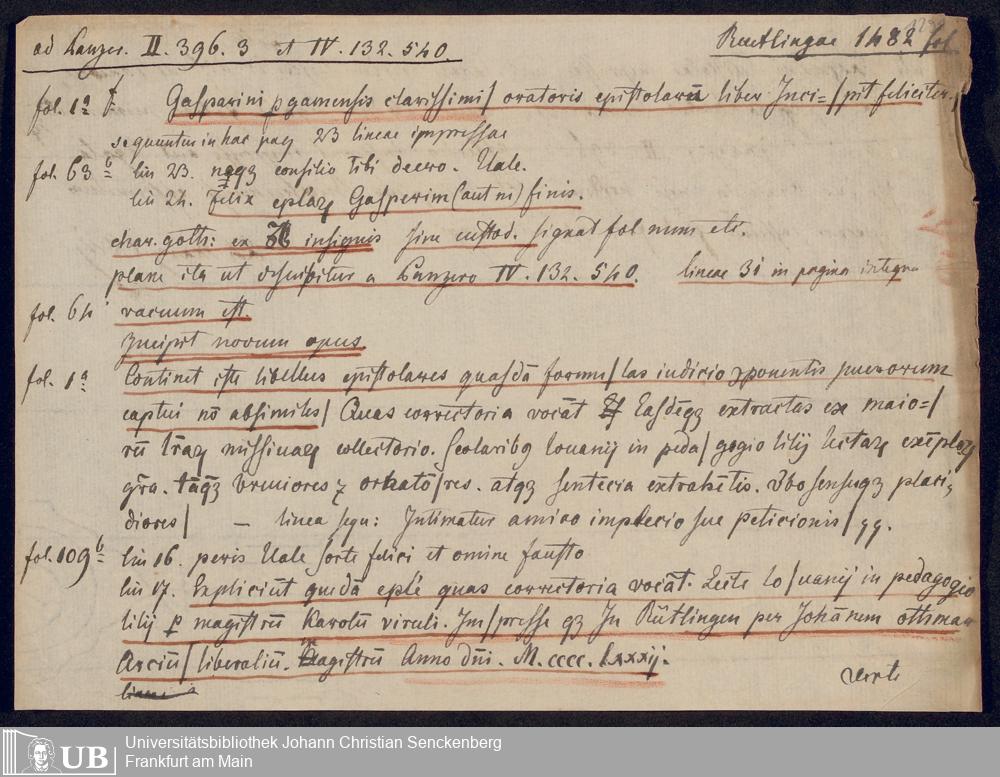 ad Panzer. II. 396. 3 et IV. 132. 540. Reutlingae 1482 fol
fol. 1a Gasparini pgamensis clarissimi/ oratoris epistolarū liber Inci=/pit feliciter.
sequuntur in hac pag 23 lineae impressae
fol. 63b lin 23. neqz consilio tibi deero. Uale.
lin 24. Felix eplaꝝ Gasperim (aut ni) finis.
char. goth: ex insignis sine custod. signat fol num etc.
plane ita ut describitur a Panzero IV. 132. 540. lineae 31 in pagina integra
fol. 64 vacuum est.
Incipit novum opus.
fol. 1a Continet iste libellus epistolares quasdā formu/las iudicio ꝯponentis puerorum
captui nō absimiles/ Quas correctoria vocāt Et easdēqz extractas ex maio=/
rū lr̄aꝝ missiuaꝝ collectorio. Scolaribꝯ louanij in peda/gogio lilij lectaꝝ exēplaꝝ
gr̄a. tāqz breuiores ⁊ ornatio/res. atqz sentēcia extrahētis.
diores/ — linea sequ: Intimatur amico impletio sue peticionis/ qq.
fol. 109b lin 16. peris Uale sorte felici et omine fausto
lin 17. Expliciūt quedā epl'e quas correctoria vocāt. Lecte lo/uanij in pedagogio
lilij p magistrū Karolū viruli. Im/presse qz In Rūtlingen per Johānem othmar
Arciū/ liberaliū. Magistrū Anno dn̄i. M. cccc. lxxxij.
verte
Universitätsbibliothek Johann Christian Senckenberg
UB Frankfurt am Main